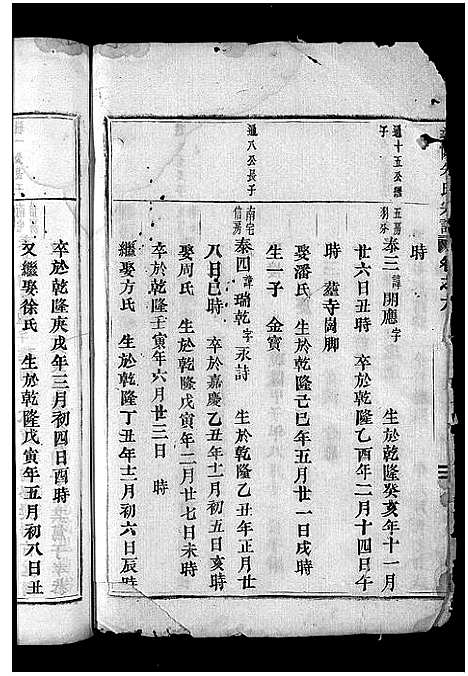 時
通十五公繼子
五房
泰三 諱開應字 生於乾隆癸亥年十一月
廿六日丑時 卒於乾隆乙酉年二月十四日午
時 葬寺崗脚
娶潘氏 生於乾隆己巳年五月廿一日戌時
生一子 金寶
通八公長子
南宅信房
泰四 諱瑞乾字永詩 生於乾隆乙丑年正月廿
八日巳時 卒於嘉慶乙丑年十一月初五日亥時
娶周氏 生於乾隆戊寅年二月廿七日未時
卒於乾隆壬寅年六月廿三日 時
繼娶方氏 生於乾隆丁丑年十二月初六日辰時
卒於乾隆庚戌年三月初四日酉時
又繼娶徐氏 生於乾隆戊寅年五月初八日丑